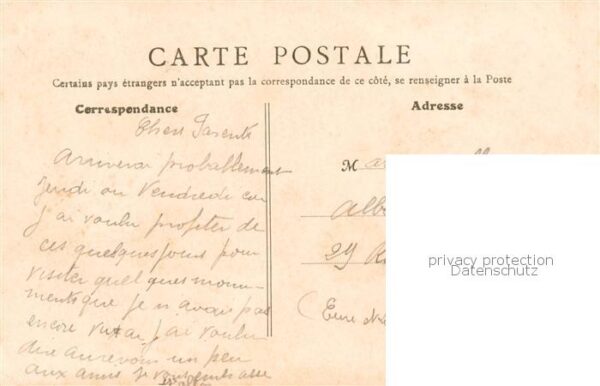 CARTE POSTALE
Certains pays étrangers n'acceptant pas la correspondance de ce côté, se renseigner à la Poste
Correspondance
Adresse
Chers Parents
Arriverai probablement
Jeudi ou Vendredi car
J'ai voulu profiter de
ces quelques jours pour
visiter quelques monu-
ments que je n'avais pas
encore vu J'ai voulu
dire au revoir un peu
aux amis je
M
Alb
29 R
(Eure
privacy protection
Datenschutz